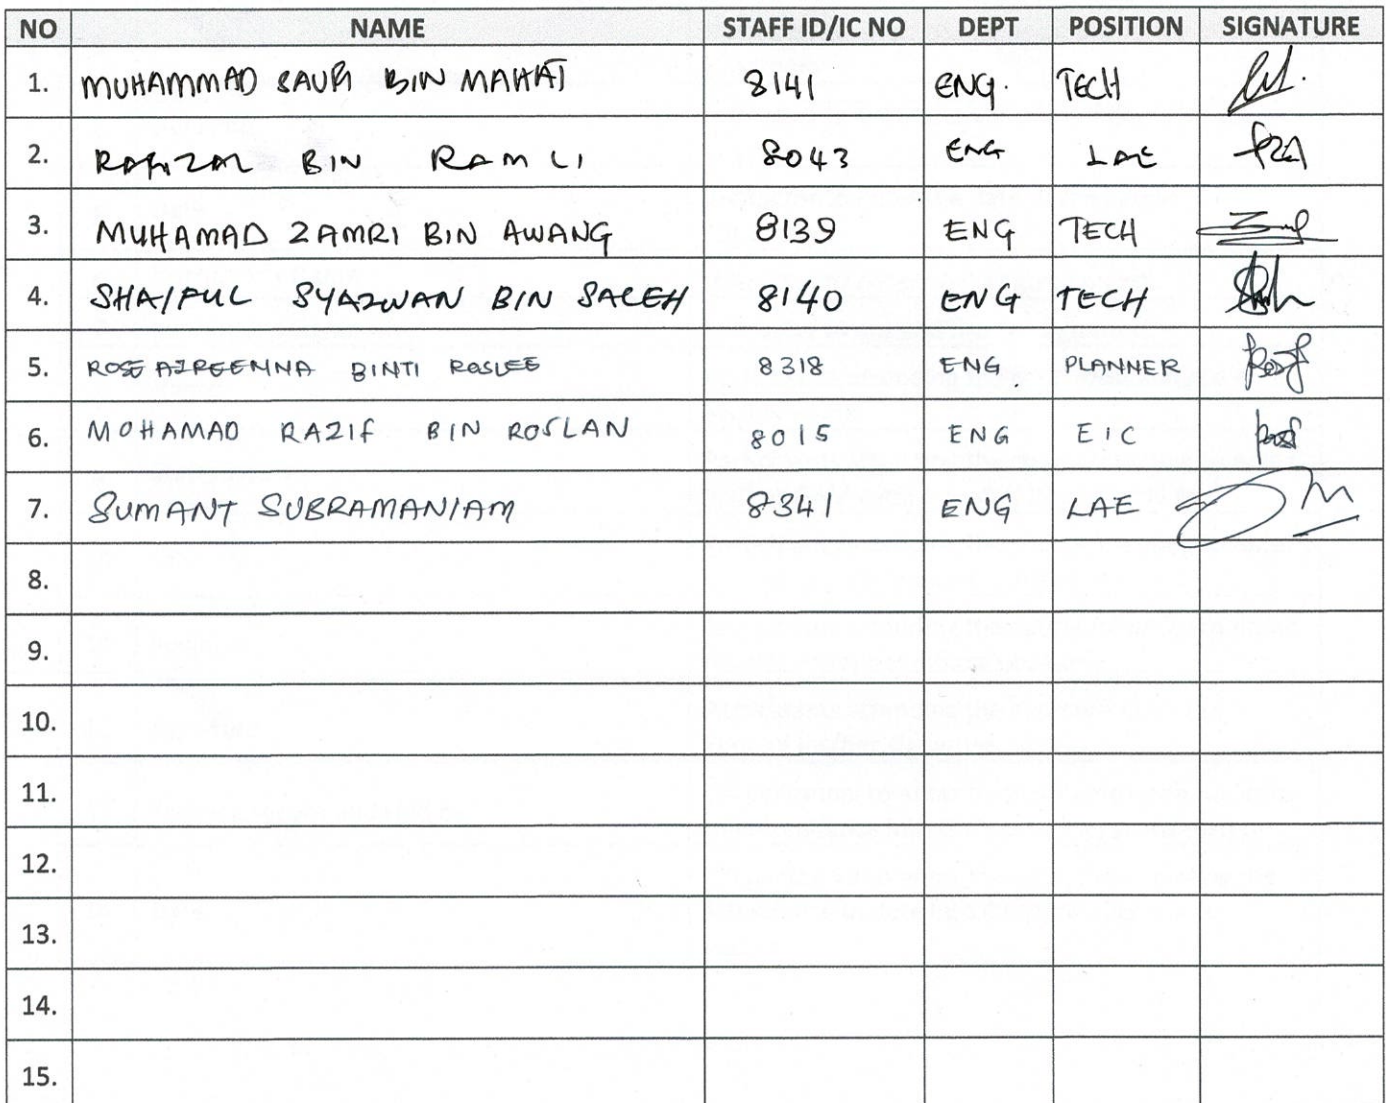 NO NAME STAFF ID/IC NO DEPT POSITION SIGNATURE
1. MUHAMMAD SAUFI BIN MAHAT 8141 ENG. TECH
2. RAFIZAL BIN RAMLI 8043 ENG LAE
3. MUHAMAD ZAMRI BIN AWANG 8139 ENG TECH
4. SHAIFUL SYAZWAN BIN SALEH 8140 ENG TECH
5. ROSE AIREENNA BINTI ROSLEE 8318 ENG. PLANNER
6. MOHAMAD RAZIF BIN ROSLAN 8015 ENG EIC
7. SUMANT SUBRAMANIAM 8341 ENG LAE
8.
9.
10.
11.
12.
13.
14.
15.